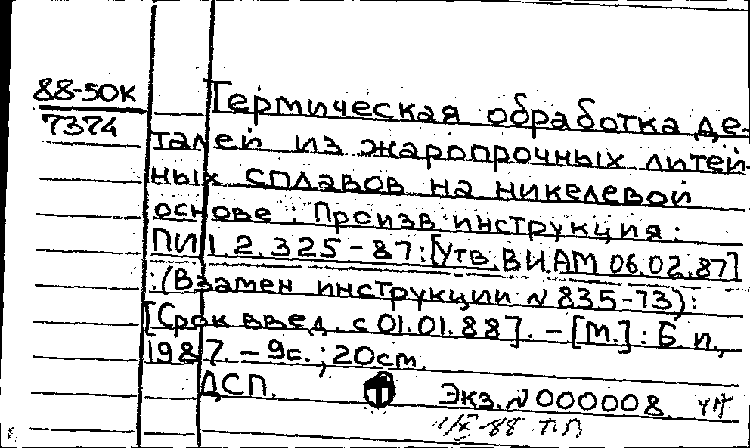 88-50К
7374
Термическая обработка де-
талей из жаропрочных литей-
ных сплавов на никелевой
основе : Произв. инструкция :
ПИ 1.2.325-87 : [Утв. ВИАМ 06.02.87]
: (Взамен инструкции № 835-73) :
[Срок введ. с 01.01.88]. - [М.] : Б. и.,
1987. - 9с. ; 20см.
ДСП.
Экз. № 000008